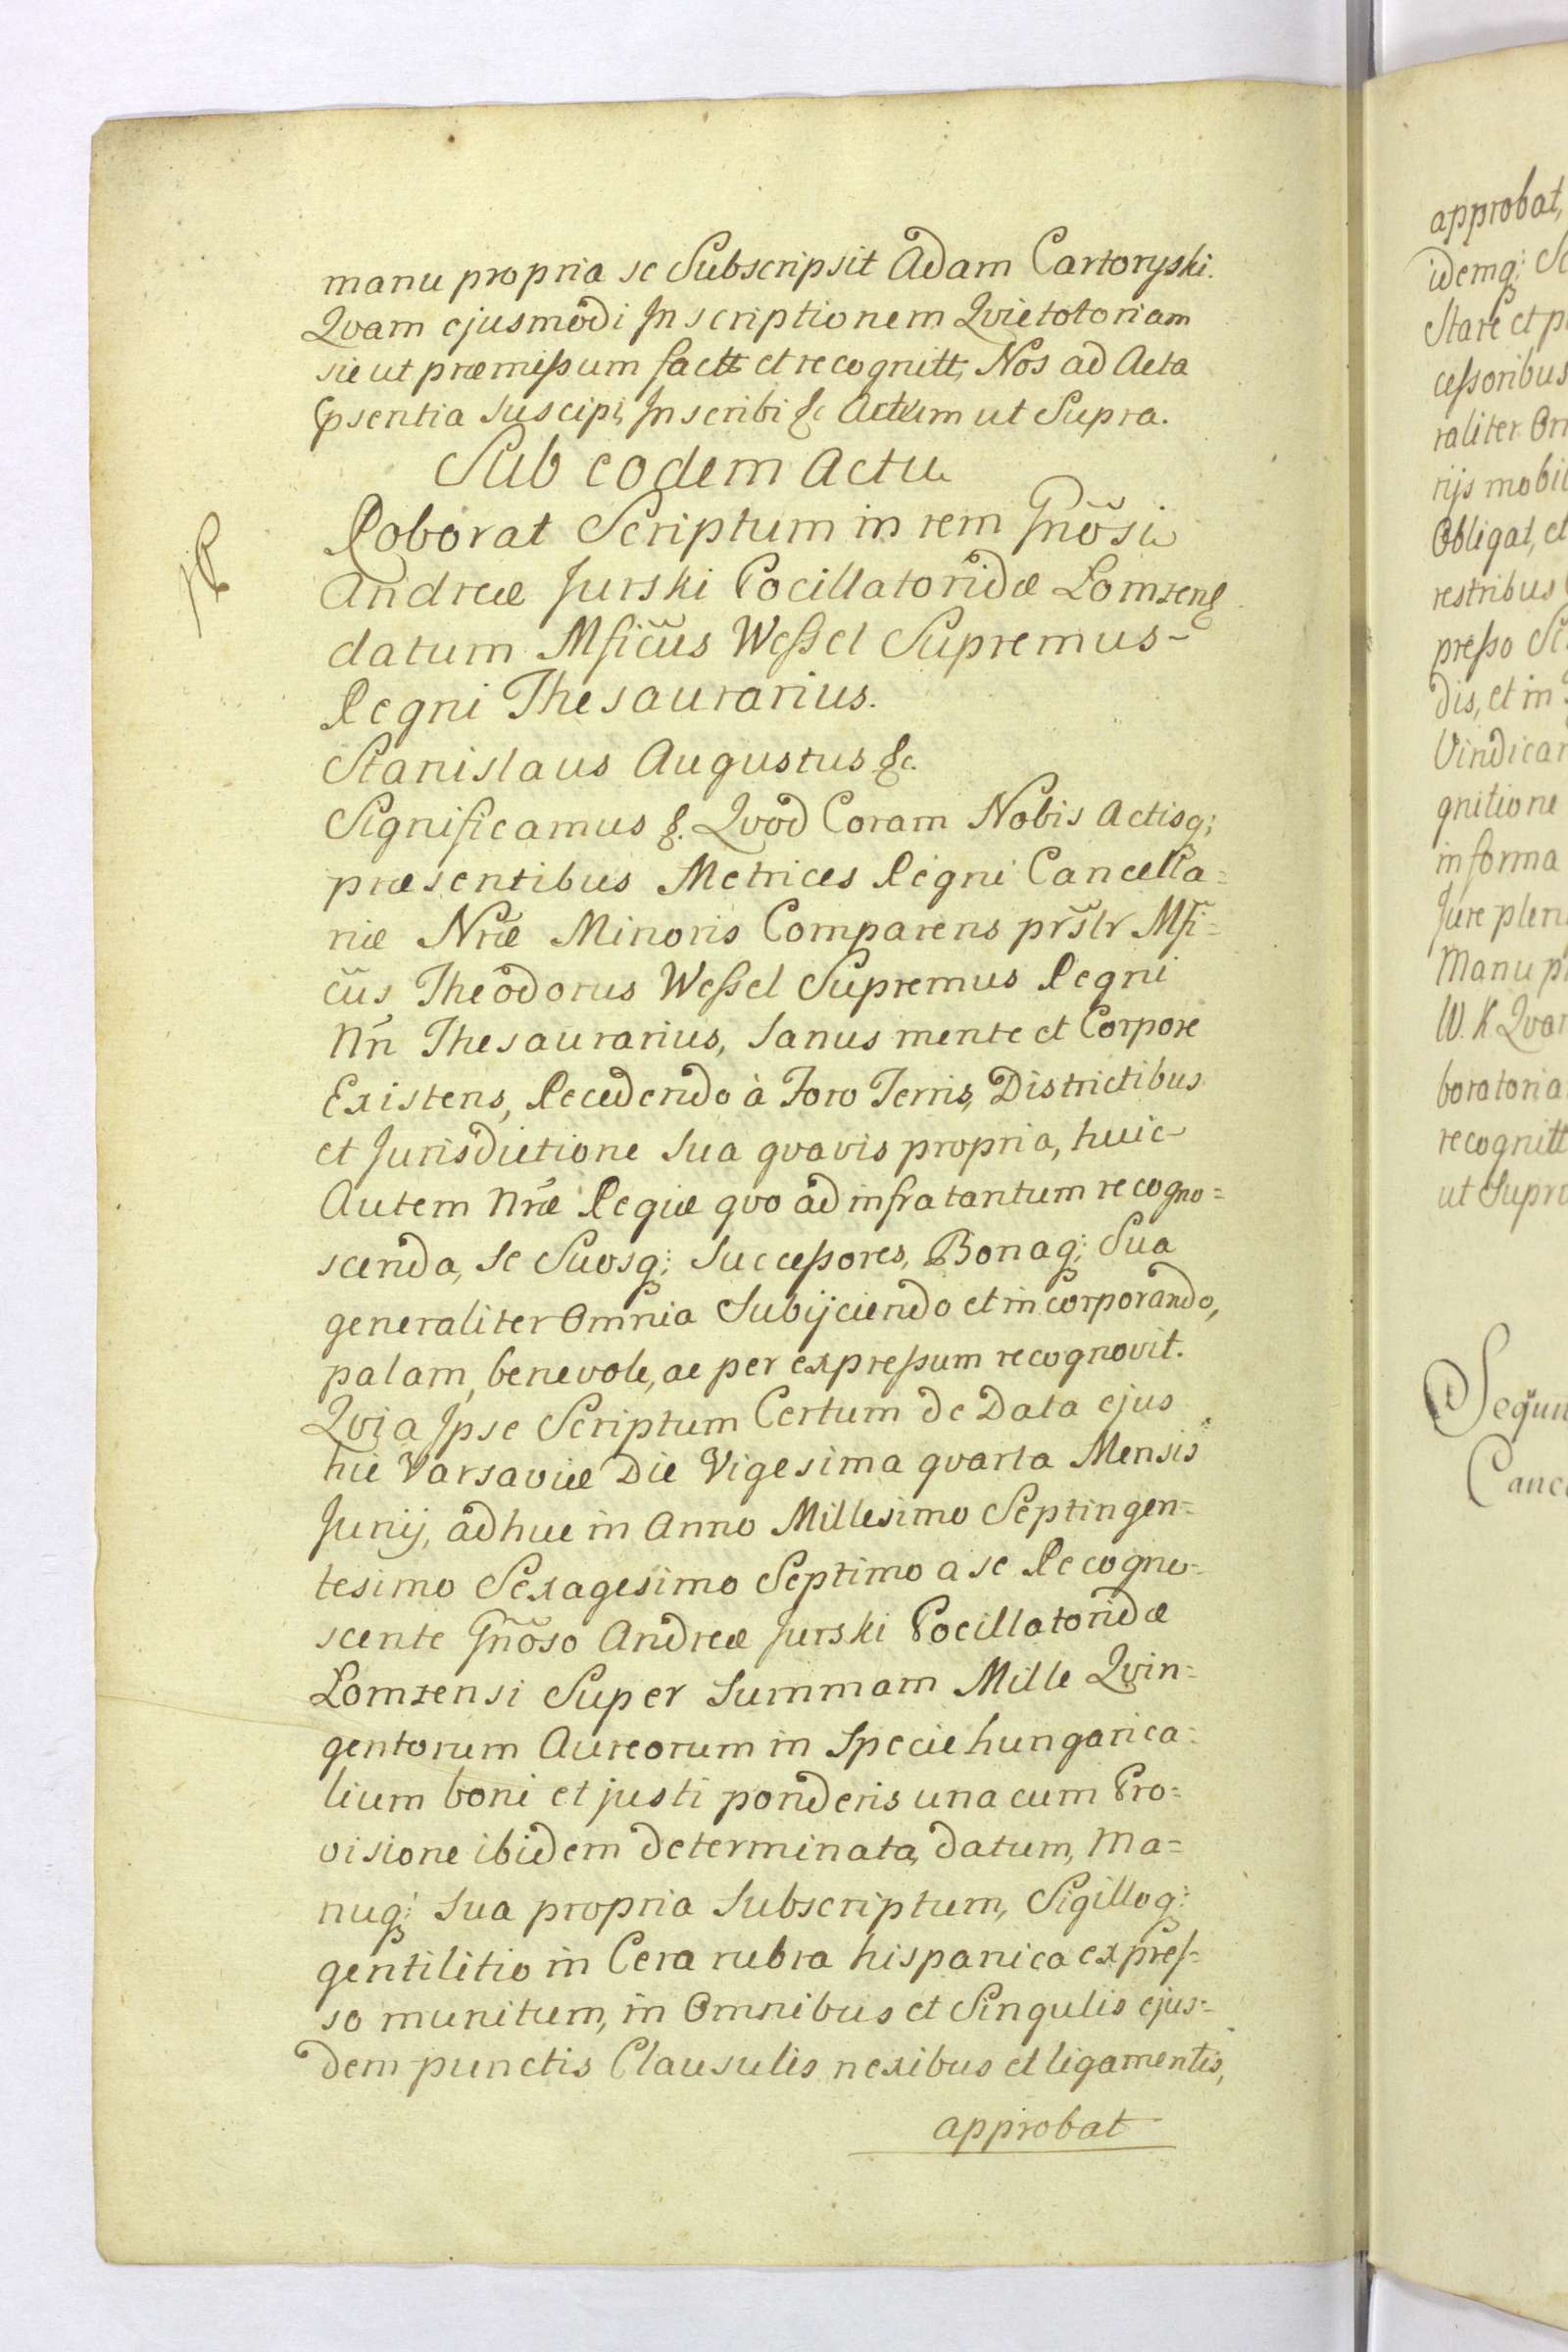 manu propria se Subscripsit Adam Cartoryski.
Qvam ejusmodi Inscriptionem Qvietotoriam
sic ut præmissum factt et recognitt, Nos ad Acta
psentia suscipi, Inscribi &c Actum ut Supra.
Sub eodem Actu
Roborat Scriptum in rem Gnõsi
Andreæ Jurski Pocillatoridæ Lomzen&
datum Mficũs Wessel Supremus
Regni Thesaurarius.
Stanislaus Augustus &c.
Significamus &. Qvod Coram Nobis Actisq;
præsentibus Metrices Regni Cancella=
riæ Nræ Minoris Comparens prsltr Mfi=
cũs Theodorus Wessel Supremus Regni
Nri Thesaurarius, sanus mente et Corpore
Existens, Recedendo à Foro Terris, Districtibus
et Jurisdictione sua qvavis propria, huic
Autem nræ Regiæ qvo ad infra tantum recogno=
scenda, se Suosq; successores, Bonaq; Sua
generaliter Omnia Subijciendo et incorporando,
palam, benevole, ac per expressum recognovit.
Qvia Ipse Scriptum Certum de Data ejus
hic Varsaviæ Die Vigesima qvarta Mensis
Junij, adhuc in Anno Millesimo Septingen=
tesimo Sexagesimo Septimo a se Recogno=
scente Gnõso Andreæ Jurski Pocillatoridæ
Lomzensi Super summam Mille Qvin=
gentorum Aureorum in specie hungarica=
lium boni et justi ponderis una cum Pro=
visione ibidem determinata, datum, Ma=
nuq; sua propria subscriptum, Sigilloq;
gentilitio in Cera rubra hispanica expres=
so munitum, in Omnibus et Singulis ejus=
dem punctis Clausulis nexibus et ligamentis,
approbat
approbat,
idemq; Sc
Stare et p
cessoribus
raliter Om
rijs mobil
Obligat, et
restribus
presso Sc
dis, et in
Vindicar
gnitione
in forma
Jure plen
Manu p
W. K Qvar
boratoria
recognitt
ut Supra
Sequn
Canc